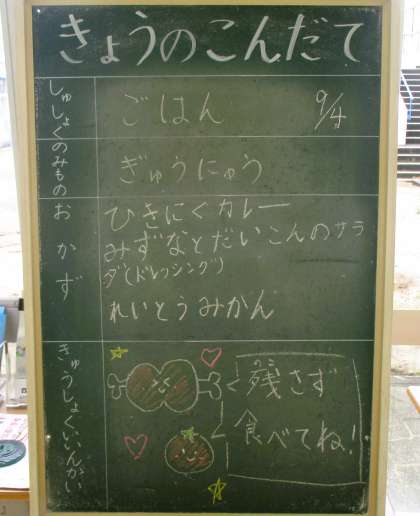 きょうのこんだて
しゅしょく ごはん 9/4
のみもの ぎゅうにゅう
おかず ひきにくカレー
みずなとだいこんのサラ
ダ(ドレッシング)
れいとうみかん
きゅうしょくいいんかい
残さず
のこ
食べてね!